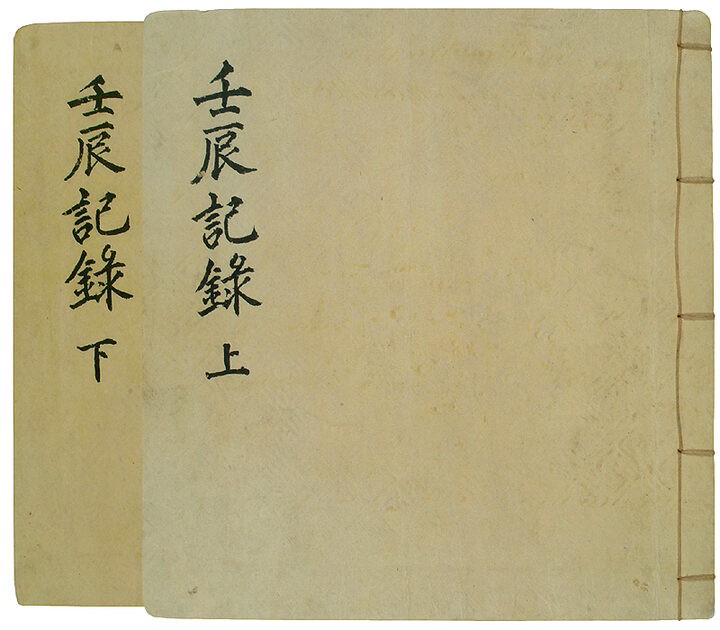 壬辰記錄 上
壬辰記錄 下